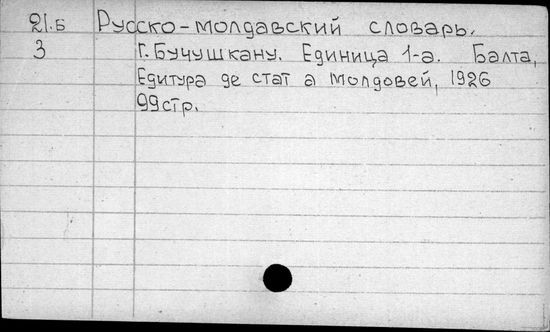 21.Б Русско-молдавский словарь.
3 Г. Бучушкану. Единица 1-а. Балта,
Едитура де стат а Молдовей, 1926
99 стр.